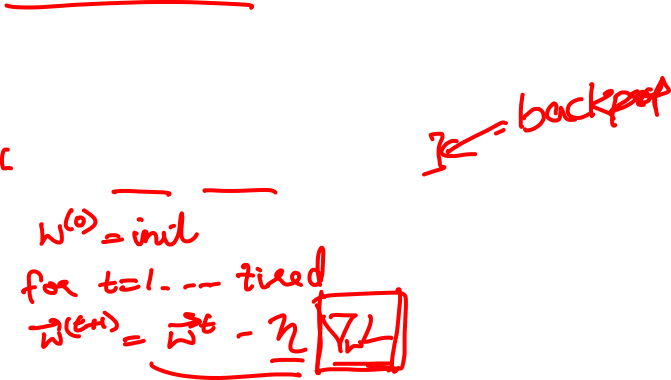 backprop
w^(0) = init
for t=1. ... tired
w⃗^(t+1) = w⃗^t - η ∇_w L